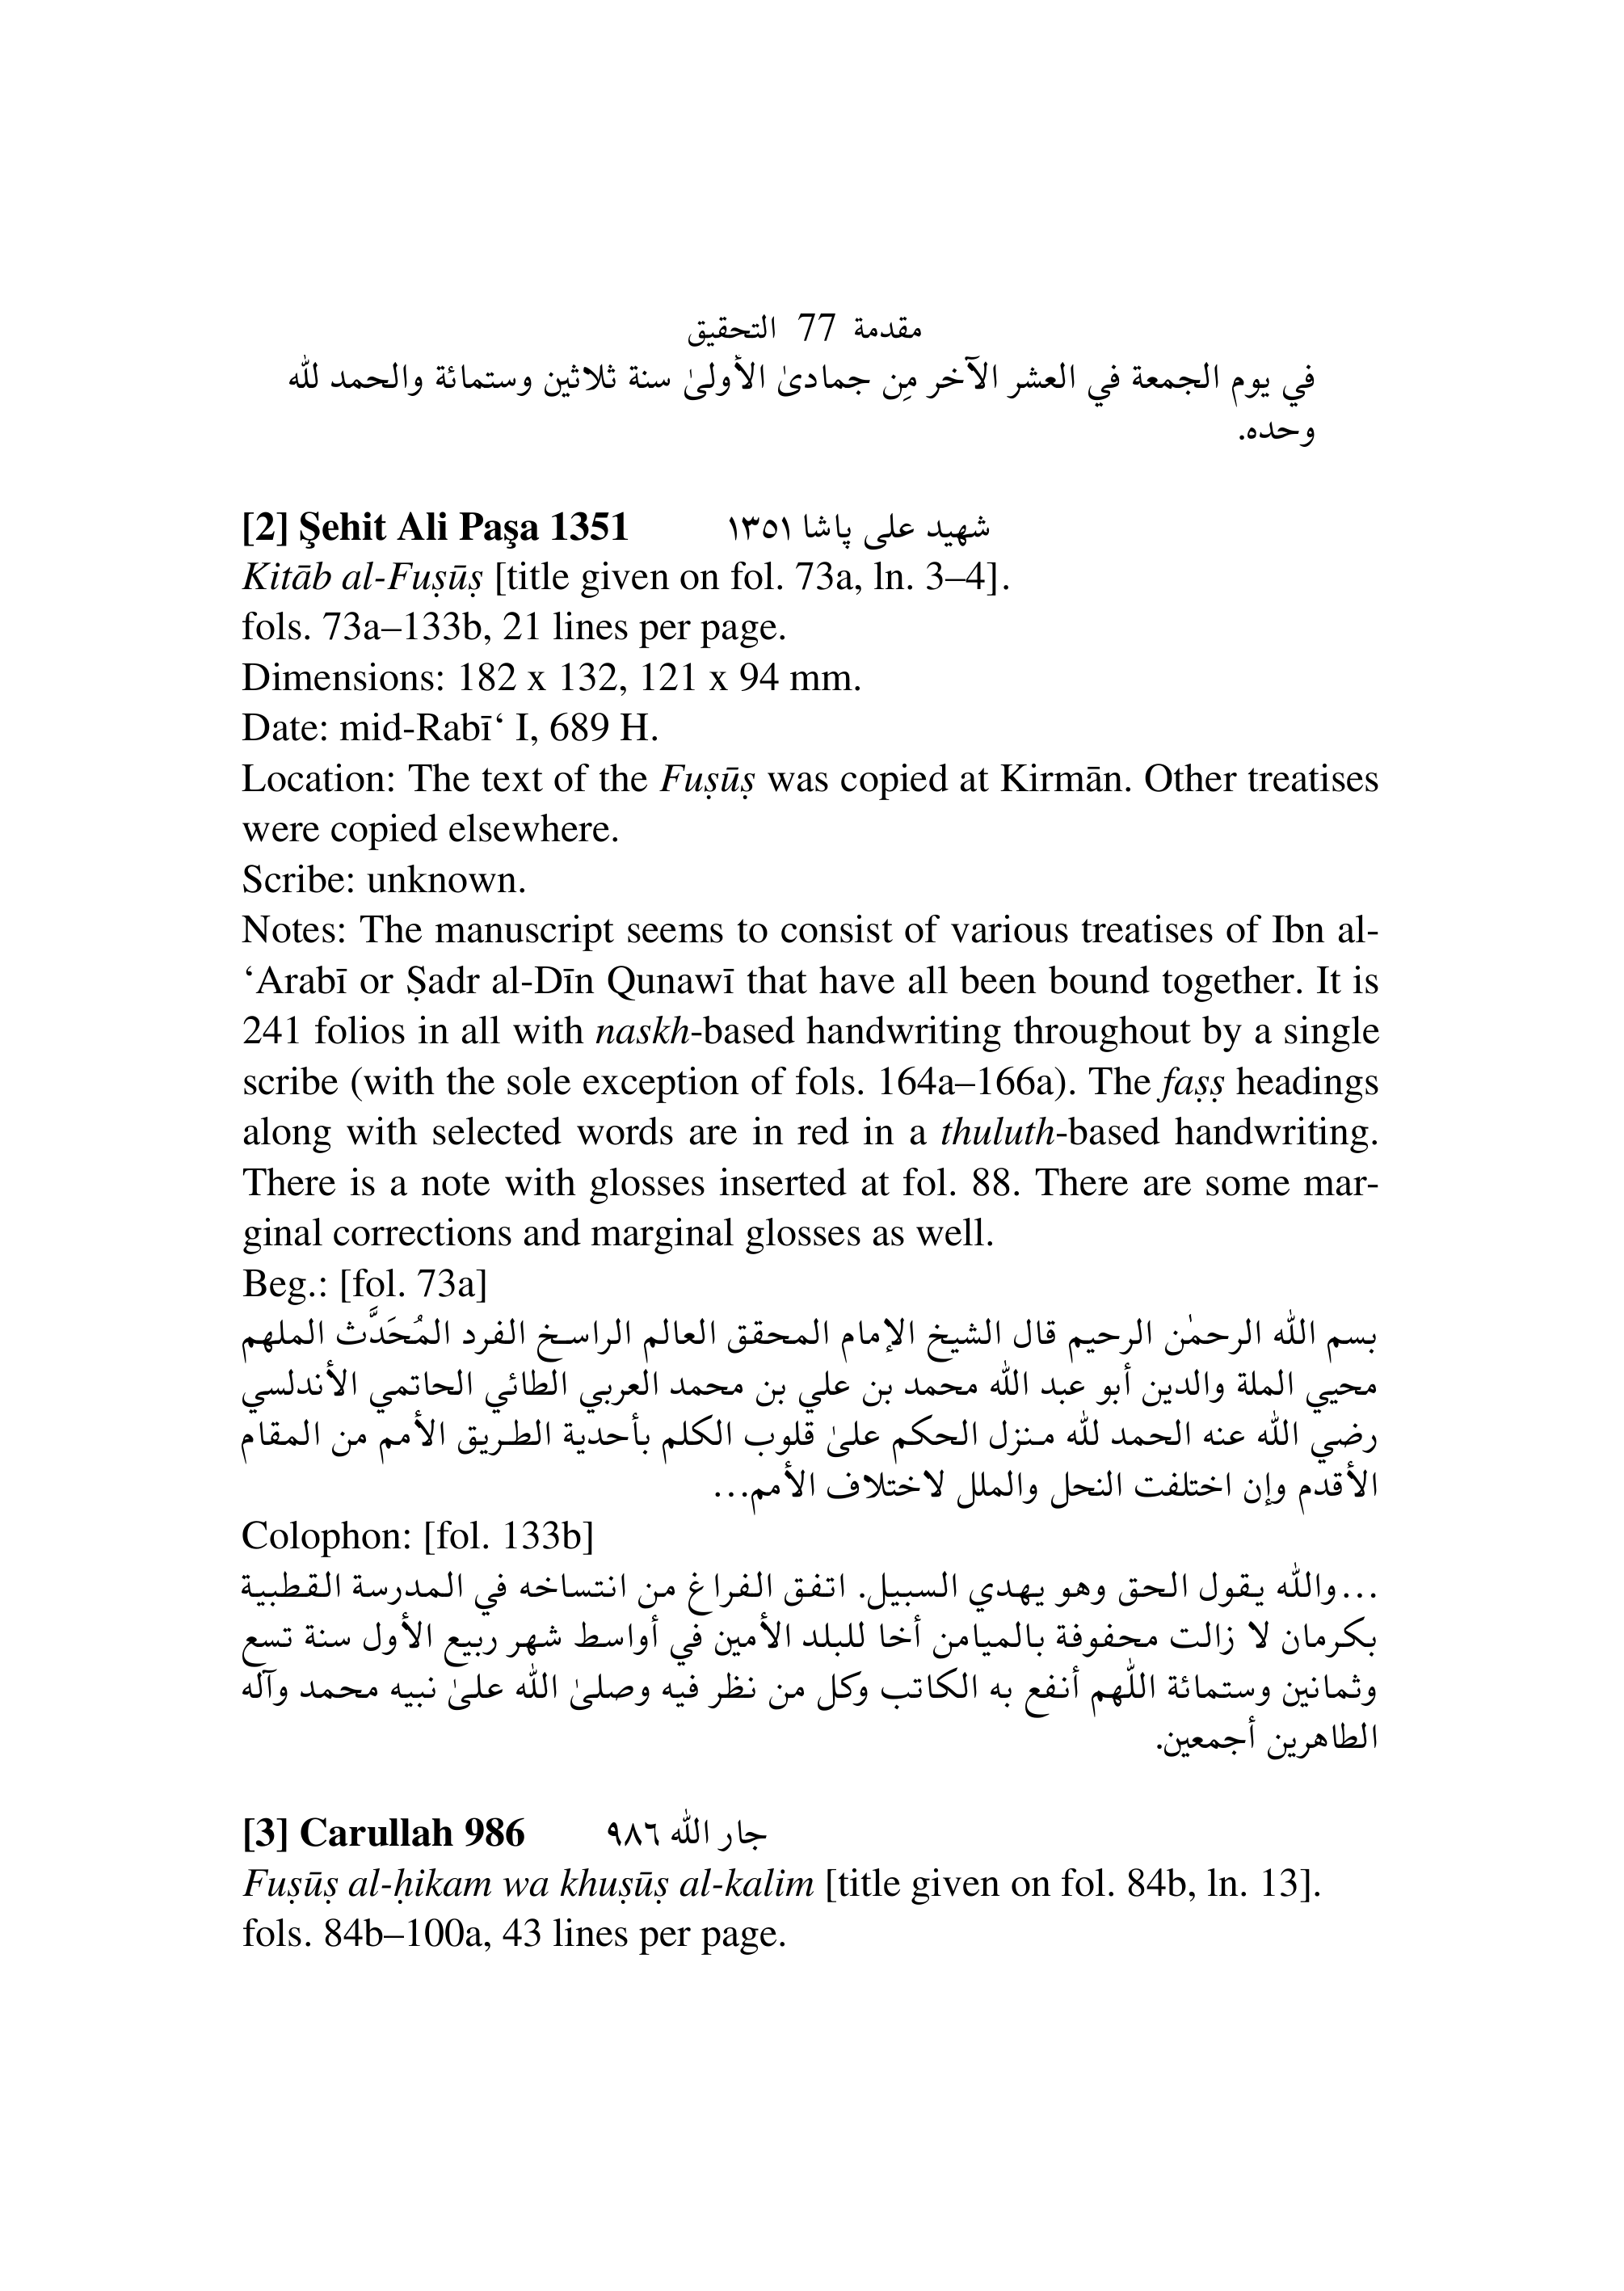 مقدمة 77 التحقيق
في يوم الجمعة في العشر الآخر مِن جمادىٰ الأولىٰ سنة ثلاثين وستمائة والحمد لله
وحده.
[2] Şehit Ali Paşa 1351 شهيد على پاشا ١٣٥١
Kitāb al-Fuṣūṣ [title given on fol. 73a, ln. 3–4].
fols. 73a–133b, 21 lines per page.
Dimensions: 182 x 132, 121 x 94 mm.
Date: mid-Rabī‘ I, 689 H.
Location: The text of the Fuṣūṣ was copied at Kirmān. Other treatises
were copied elsewhere.
Scribe: unknown.
Notes: The manuscript seems to consist of various treatises of Ibn al-
‘Arabī or Ṣadr al-Dīn Qunawī that have all been bound together. It is
241 folios in all with naskh-based handwriting throughout by a single
scribe (with the sole exception of fols. 164a–166a). The faṣṣ headings
along with selected words are in red in a thuluth-based handwriting.
There is a note with glosses inserted at fol. 88. There are some mar-
ginal corrections and marginal glosses as well.
Beg.: [fol. 73a]
بسم الله الرحمٰن الرحيم قال الشيخ الإمام المحقق العالم الراسخ الفرد المُحَدَّث الملهم
محيي الملة والدين أبو عبد الله محمد بن علي بن محمد العربي الطائي الحاتمي الأندلسي
رضي الله عنه الحمد لله منزل الحكم علىٰ قلوب الكلم بأحدية الطريق الأمم من المقام
الأقدم وإن اختلفت النحل والملل لاختلاف الأمم...
Colophon: [fol. 133b]
...والله يقول الحق وهو يهدي السبيل. اتفق الفراغ من انتساخه في المدرسة القطبية
بكرمان لا زالت محفوفة بالميامن أخا للبلد الأمين في أواسط شهر ربيع الأول سنة تسع
وثمانين وستمائة اللّهم أنفع به الكاتب وكل من نظر فيه وصلىٰ الله علىٰ نبيه محمد وآله
الطاهرين أجمعين.
[3] Carullah 986 جار الله ٩٨٦
Fuṣūṣ al-ḥikam wa khuṣūṣ al-kalim [title given on fol. 84b, ln. 13].
fols. 84b–100a, 43 lines per page.